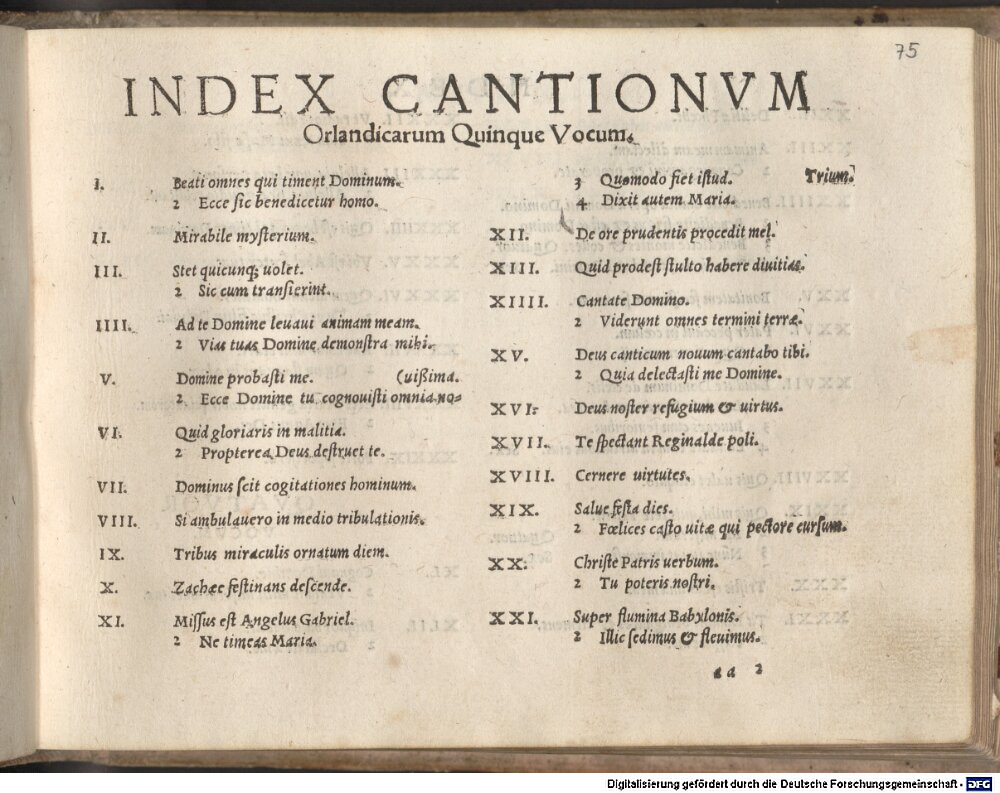 75
INDEX CANTIONVM
Orlandicarum Quinque Vocum.
I. Beati omnes qui timent Dominum.
2 Ecce sic benedicetur homo.
II. Mirabile mysterium.
III. Stet quicunq; uolet.
2 Sic cum transierint.
IIII. Ad te Domine leuaui animam meam.
2 Vias tuas Domine demonstra mihi.
V. Domine probasti me. (uißima.
2 Ecce Domine tu cognouisti omnia no=
VI. Quid gloriaris in malitia.
2 Propterea Deus destruet te.
VII. Dominus scit cogitationes hominum.
VIII. Si ambulauero in medio tribulationis.
IX. Tribus miraculis ornatum diem.
X. Zachæe festinans descende.
XI. Missus est Angelus Gabriel.
2 Ne timeas Maria.
3 Quomodo fiet istud. Trium.
4 Dixit autem Maria.
XII. De ore prudentis procedit mel.
XIII. Quid prodest stulto habere diuitias.
XIIII. Cantate Domino.
2 Viderunt omnes termini terræ.
XV. Deus canticum nouum cantabo tibi.
2 Quia delectasti me Domine.
XVI. Deus noster refugium & uirtus.
XVII. Te spectant Reginalde poli.
XVIII. Cernere uirtutes.
XIX. Salue festa dies.
2 Fœlices casto uitæ qui pectore cursum.
XX. Christe Patris uerbum.
2 Tu poteris nostri.
XXI. Super flumina Babylonis.
2 Illic sedimus & fleuimus.
aa 2
Digitalisierung gefördert durch die Deutsche Forschungsgemeinschaft - DFG